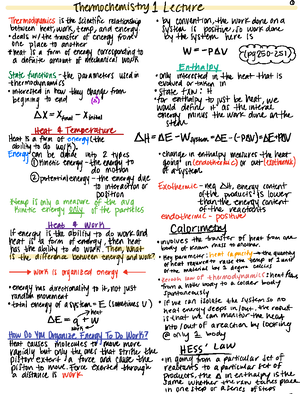 Thermochemistry 1 Lecture
Thermodynamics is the scientific relationship
between heat, work, temp, and energy
• deals w/ the transfer of energy from
one place to another
• heat is a form of energy corresponding to
a definite amount of mechanical work
State functions - the parameters used in
thermodynamics
• interested in how they change from
beginning to end
ΔX = Xfinal - Xinitial
Heat & Temperature
Heat is a form of energy (the
ability to do work).
Energy can be divided into 2 types
① kinetic energy - the energy of
motion
② potential energy - the energy due
to interaction or
position
Temp is only a measure of the avg
kinetic energy only of the particles
Heat & Work
If energy is the ability to do work and
heat is a form of energy, then heat
has the ability to do work. Then, what
is the difference between energy and work?
• work is organized energy
• energy has directionality to it, not just
random movement
• total energy of a system = E (sometimes U)
ΔE = q + W
heat
work
How Do You Organize Energy To Do Work?
Heat causes molecules to move more
rapidly but only the ones that strike the
piston exert a force and cause the
piston to move. Force exerted through
a distance is work
• by convention, the work done on a
system is positive, so work done
by the system here is
W = -PΔV
(pg 250-251)
Enthalpy
• only interested in the heat that is
evolved or taken in
• state fxn: H
• for enthalpy to just be heat, we
would define it as the internal
energy minus the work done on the
system
ΔH = ΔE - Wsystem = ΔE - (-PΔV) = ΔE + PΔV
• change in enthalpy measures the heat
going in (endothermic) or out (exothermic)
of a system
Exothermic - neg ΔH, energy content
of the products is lower
than the energy content
of the reactants
endothermic - positive
Calorimetry
• involves the transfer of heat from one
body of known mass to another.
• key parameter: heat capacity - the quantity
of heat required to raise the temp of 1 gram
of the material by 1 degree celsius
• zeroth law of thermodynamics: heat flows
from a hotter body to a colder body
spontaneously
• If we can isolate the system so no
heat energy seeps in/out, the result
is that we can monitor the heat
into/out of a reaction by looking
@ only 1 body
HESS' LAW
• in going from a particular set of
reactants to a particular set of
products, the Δ in enthalpy is the
same whether the rxn takes place
in one step or a series of steps